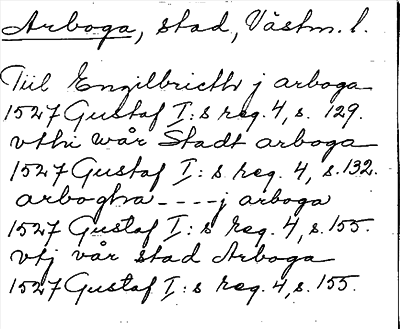 Arboga, stad, Västm. l.
Tiil Engilbricth j arboga
1527 Gustaf I:s reg. 4, s. 129.
vthi wår Stadt arboga
1527 Gustaf I:s reg. 4, s. 132.
arbogha ---- j arboga
1527 Gustaf I:s reg. 4, s. 155.
vtj vår stad Arboga
1527 Gustaf I:s reg. 4, s. 155.